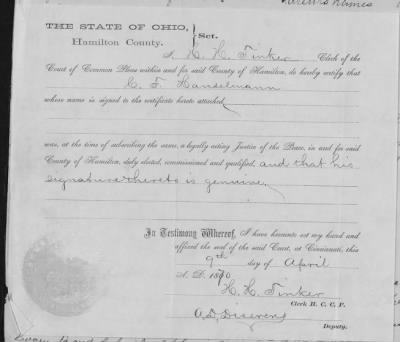 THE STATE OF OHIO,
Hamilton County. } Sct.
I, H. H. Tinker Clerk of the
Court of Common Pleas within and for said County of Hamilton, do hereby certify that
C. F. Hanselmann
whose name is signed to the certificate hereto attached,
was, at the time of subscribing the same, a legally acting Justice of the Peace, in and for said
County of Hamilton, duly elected, commissioned and qualified, and that his
signature thereto is genuine.
In Testimony Whereof, I have hereunto set my hand and
affixed the seal of the said Court, at Cincinnati, this
9th day of April
A. D. 1870
H. H. Tinker
Clerk H. C. C. P.
A. D.
Deputy.